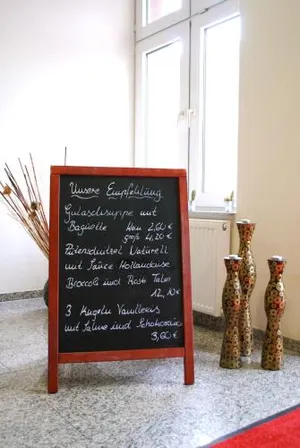 Unsere Empfehlung
Gulaschsuppe mit
Baguette klein 2,60 €
groß 4,20 €
Putenschnitzel Naturell
mit Sauce Hollandaise
Broccoli und Rösti Taler
12,10 €
3 Kugeln Vanilleeis
mit Sahne und
3,60 €